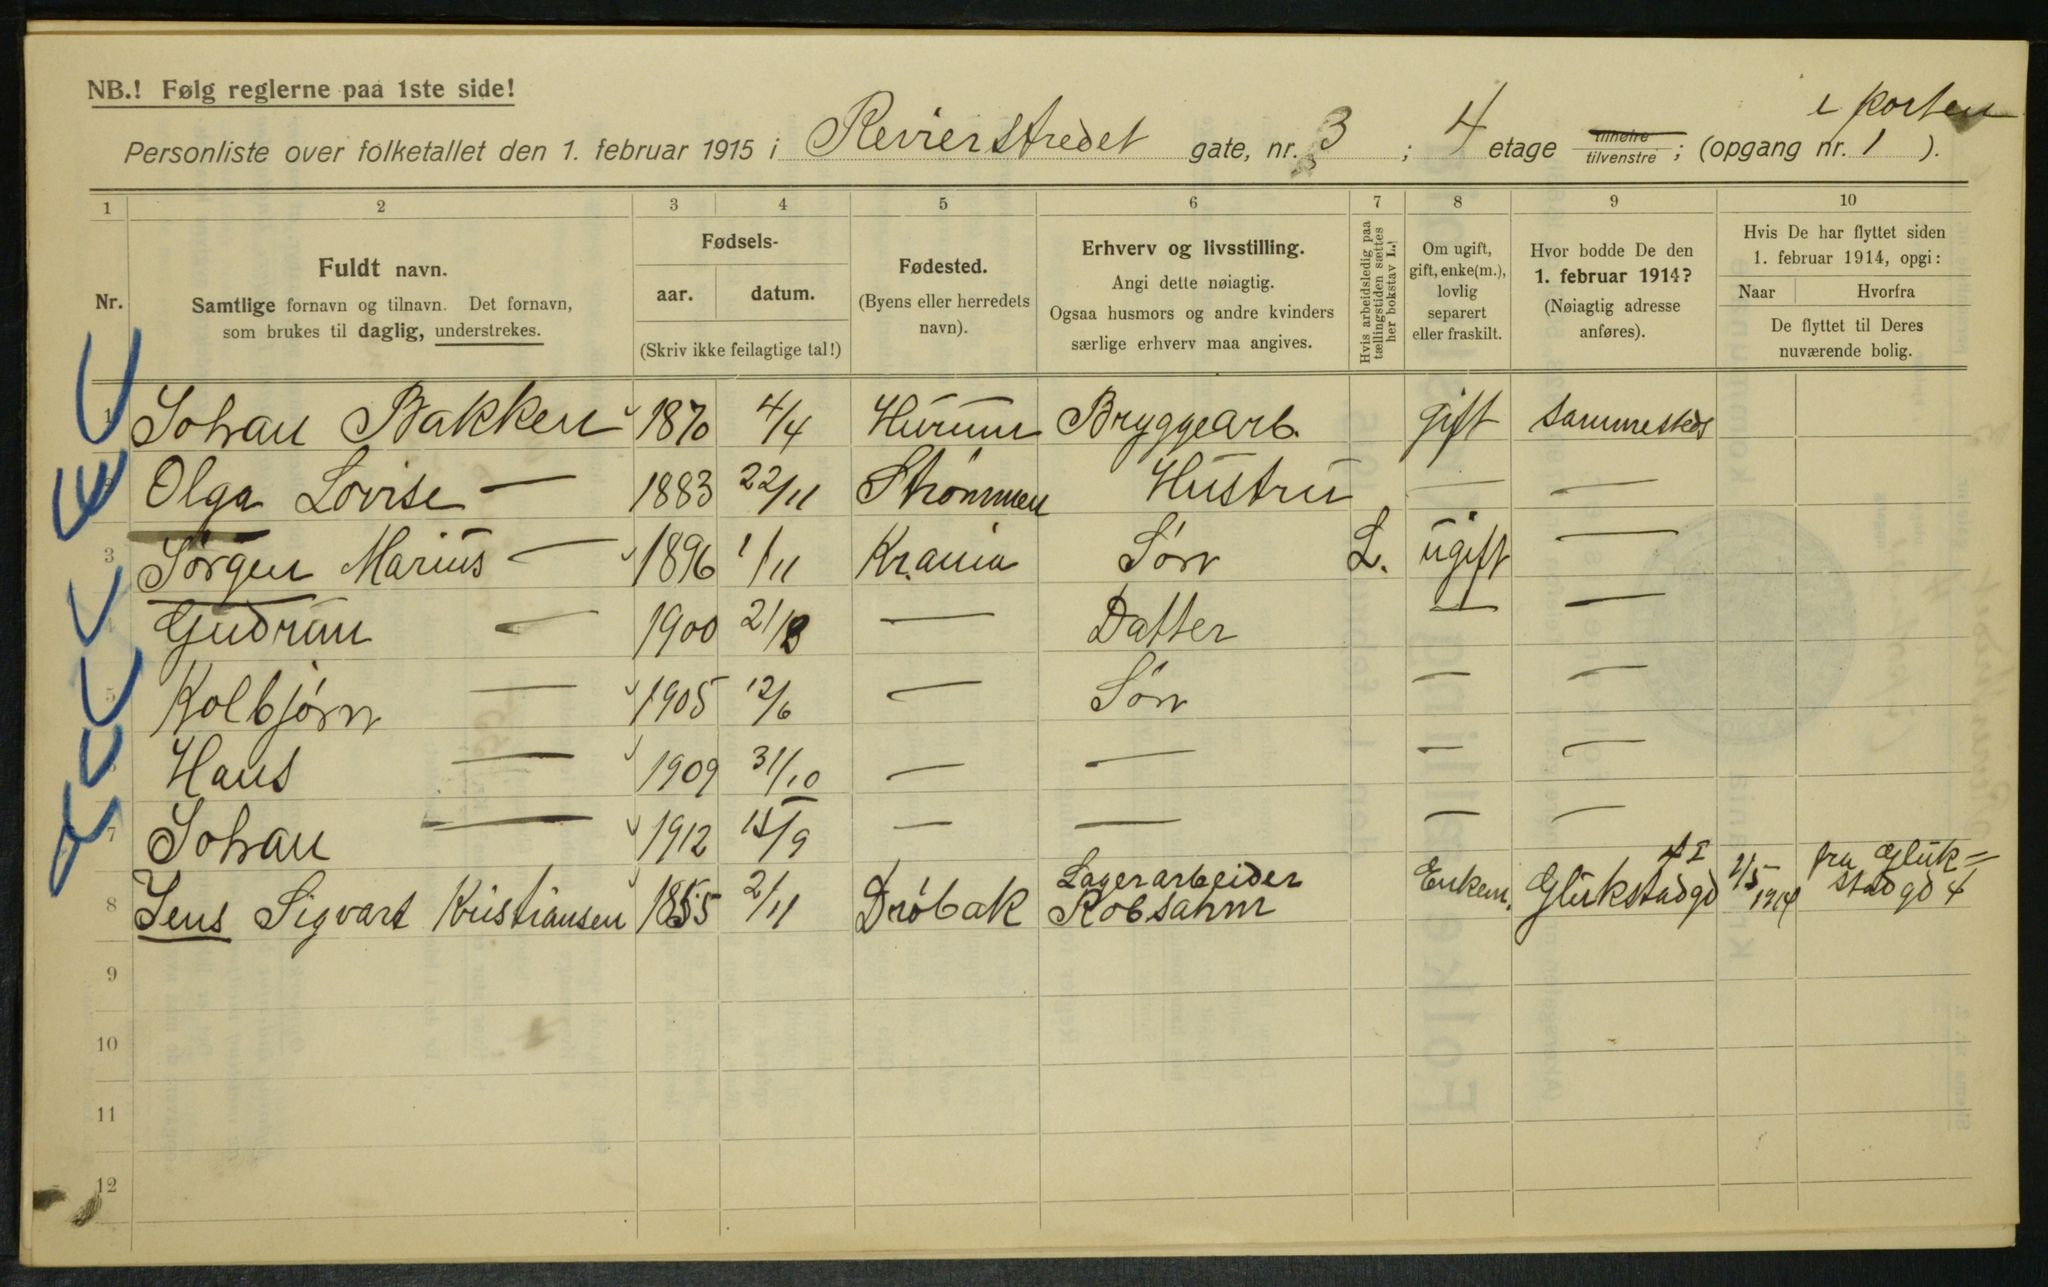 NB.! Følg reglerne paa 1ste side!
i Porten
Personliste over folketallet den 1. februar 1915 i Revierstredet gate, nr. 3 ; 4 etage tilhøire tilvenstre ; (opgang nr. 1 ).
1 2 3 4 5 6 7 8 9 10
Nr.
Fuldt navn.
Samtlige fornavn og tilnavn. Det fornavn,
som brukes til daglig, understrekes.
Fødsels-
aar. datum.
(Skriv ikke feilagtige tal!)
Fødested.
(Byens eller herredets
navn).
Erhverv og livsstilling.
Angi dette nøiagtig.
Ogsaa husmors og andre kvinders
særlige erhverv maa angives.
Hvis arbeidsledig paa
tællingstiden sættes
her bokstav L.!
Om ugift,
gift, enke(m.),
lovlig
separert
eller fraskilt.
Hvor bodde De den
1. februar 1914?
(Nøiagtig adresse
anføres).
Hvis De har flyttet siden
1. februar 1914, opgi:
Naar Hvorfra
De flyttet til Deres
nuværende bolig.
1 Johan Bakken 1870 4/4 Hurum Bryggearb. gift sammesteds
2 Olga Lovise — 1883 22/11 Strømmen Hustru — —
3 Jørgen Marius — 1896 1/11 Kr.ania Søn L. ugift —
4 Gudrun — 1900 21/3 — Datter — —
5 Kolbjørn — 1905 12/6 — Søn — —
6 Hans — 1909 31/10 — — — —
7 Johan — 1912 15/9 — — — —
8 Jens Sigvart Kristiansen 1855 2/11 Drøbak Lagerarbeider Robsahm Enkem. Glükstadgd 4 I 1/5 1914 fra Glük=stadgd 4
9
10
11
12